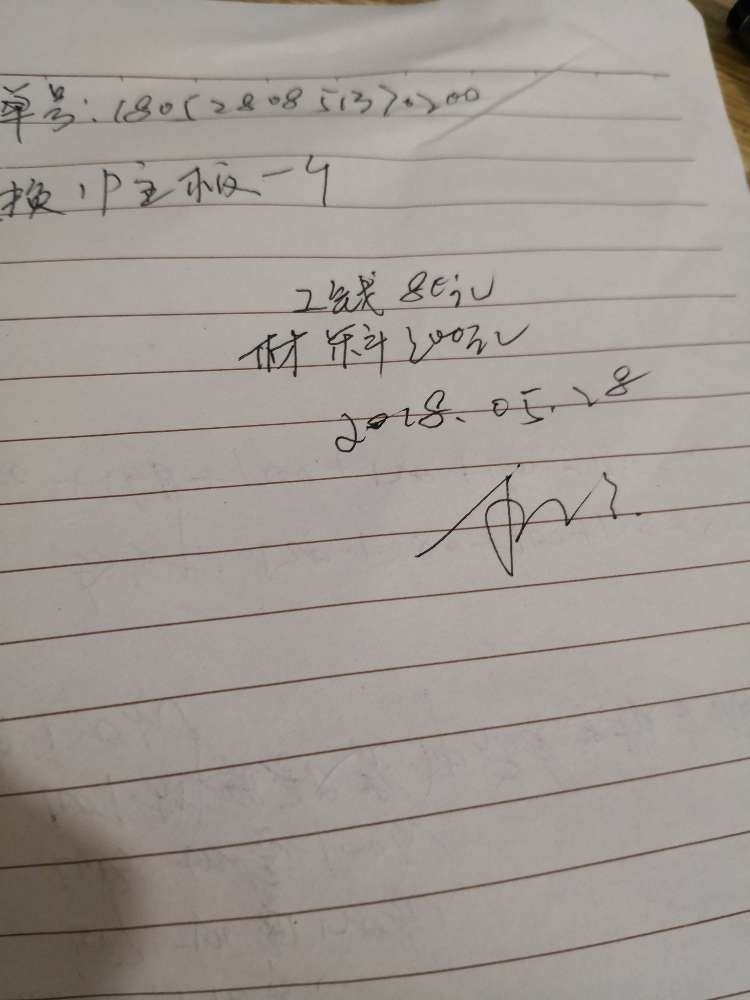 单号:1805280851370200
换IP主板一个
工钱80元
材料200元
2018.05.28